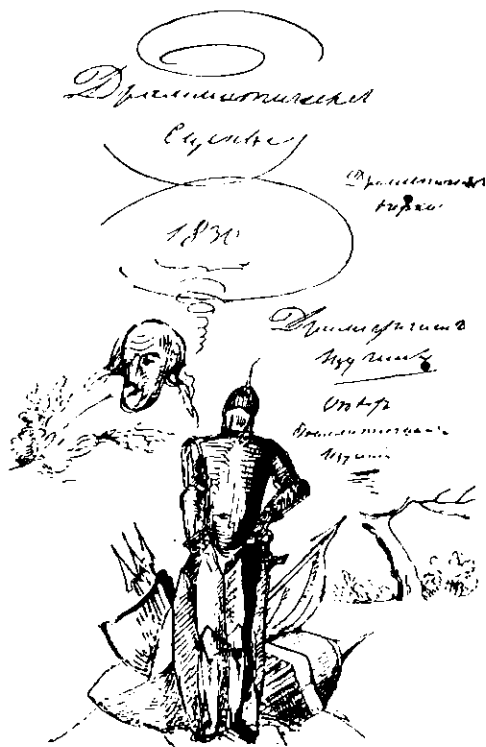 Драматическия
Сцены
Драматические
очерки
1830
Драматические
изучения
Опыт
Драматических
изучений